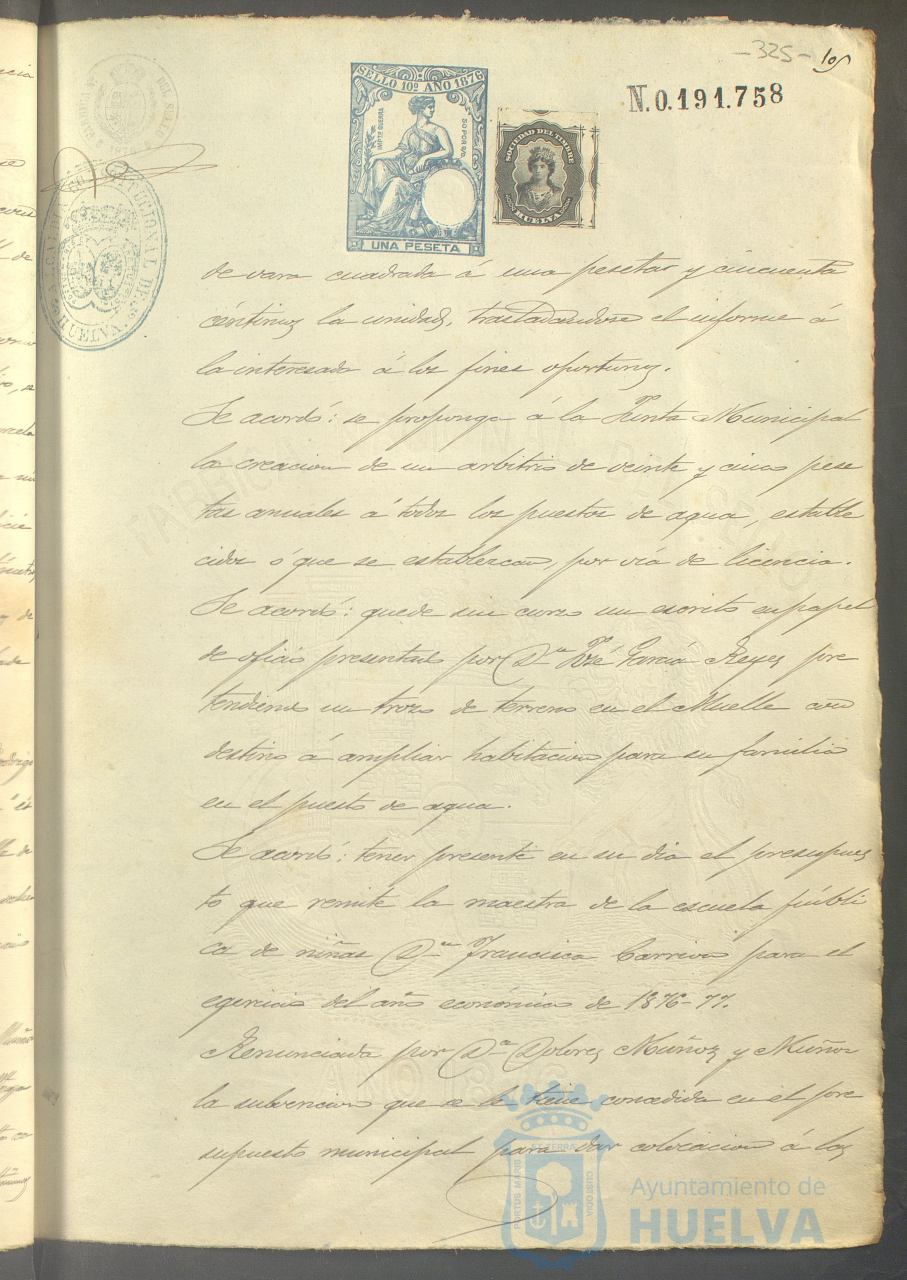 -325- 105
N.0.191.758
SELLO 10º AÑO 1876
IMPTO GUERRA
50 POR 100
UNA PESETA
SOCIEDAD DEL TIMBRE
HUELVA
ALCALDIA CONSTITUCIONAL DE
HUELVA
de vara cuadrada á una pesetas y cincuenta
céntimos la unidad, trasladandose el informe á
la interesada á los fines oportunos.
Se acordó: se proponga á la Junta Municipal
la creacion de un arbitrio de veinte y cinco pese
tas anuales á todos los puestos de agua, estable
cidos ó que se establezcan, por via de licencia.
Se acordó: quede sin curso un escrito en papel
de oficio presentado por Dn José García Reyes pre
tendiendo un trozo de terreno en el Muelle con
destino á ampliar habitacion para su familia
en el puesto de agua.
Se acordó: tener presente en su dia el presupues
to que remite la maestra de la escuela públi
ca de niñas Dª Francisca Carrion para el
egercicio del año económico de 1876-77.
Renunciada por Dª Dolores Muñoz y Muñoz
la subvencion que se le tiene concedida en el pre
supuesto municipal para dar colocacion á los
AÑO 1876
PORTUS MARIS ET TERRAE CUSTODIA
Ayuntamiento de
HUELVA